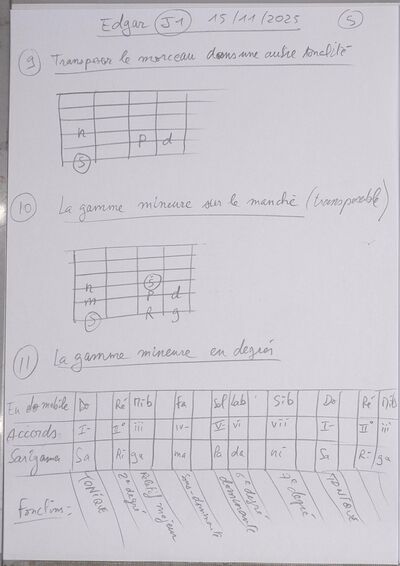 Edgar J1 15/11/2025 5
9 Transposer le morceau dans une autre tonalité
n
P d
S
10 La gamme mineure sur le manche (transposable)
S
n
m P d
S R g
11 La gamme mineure en degrés
En do mobile Do Ré Mib Fa Sol Lab Sib Do Ré Mib
Accords I- II° iii iv- V- vi vii I- II° iii
Sarigames Sa Ri ga ma Pa da ni Sa Ri ga
Fonctions: TONIQUE 2e degré relatif majeur sous-dominante dominante 6e degré 7e degré TONIQUE